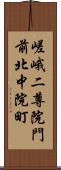 嵯峨二尊院門
前北中院町